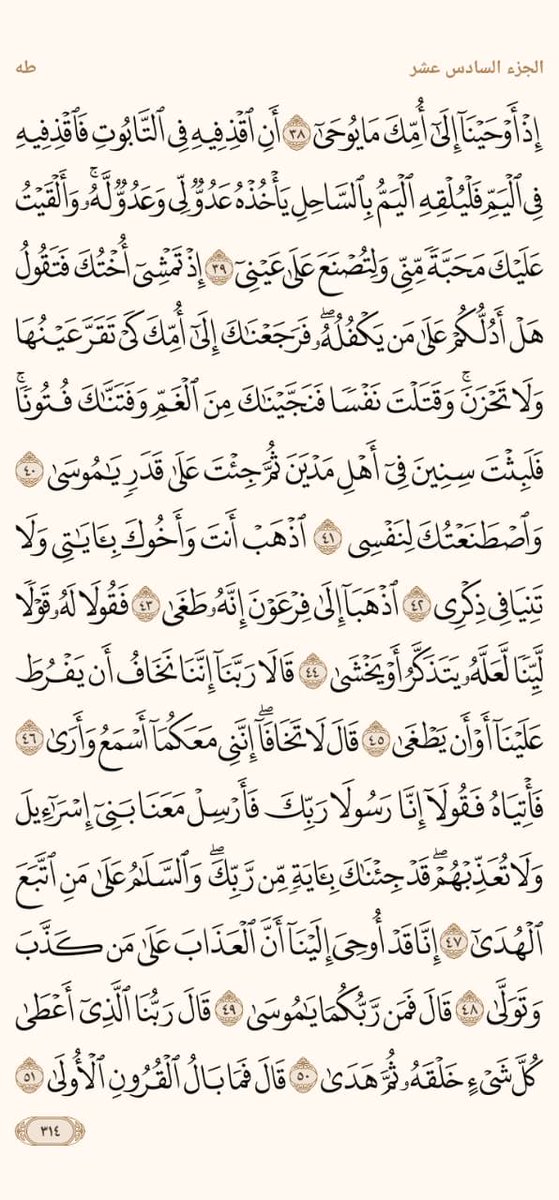 الجزء السادس عشر
طه
إِذْ أَوْحَيْنَآ إِلَىٰٓ أُمِّكَ مَا يُوحَىٰٓ ٣٨ أَنِ ٱقْذِفِيهِ فِى ٱلتَّابُوتِ فَٱقْذِفِيهِ
فِى ٱلْيَمِّ فَلْيُلْقِهِ ٱلْيَمُّ بِٱلسَّاحِلِ يَأْخُذْهُ عَدُوٌّ لِّى وَعَدُوٌّ لَّهُۥۚ وَأَلْقَيْتُ
عَلَيْكَ مَحَبَّةً مِّنِّى وَلِتُصْنَعَ عَلَىٰ عَيْنِىٓ ٣٩ إِذْ تَمْشِىٓ أُخْتُكَ فَتَقُولُ
هَلْ أَدُلُّكُمْ عَلَىٰ مَن يَكْفُلُهُۥۖ فَرَجَعْنَٰكَ إِلَىٰٓ أُمِّكَ كَىْ تَقَرَّ عَيْنُهَا
وَلَا تَحْزَنَۚ وَقَتَلْتَ نَفْسًا فَنَجَّيْنَٰكَ مِنَ ٱلْغَمِّ وَفَتَنَّٰكَ فُتُونًاۚ
فَلَبِثْتَ سِنِينَ فِىٓ أَهْلِ مَدْيَنَ ثُمَّ جِئْتَ عَلَىٰ قَدَرٍ يَٰمُوسَىٰ ٤٠
وَٱصْطَنَعْتُكَ لِنَفْسِى ٤١ ٱذْهَبْ أَنتَ وَأَخُوكَ بِـَٔايَٰتِى وَلَا
تَنِيَا فِى ذِكْرِى ٤٢ ٱذْهَبَآ إِلَىٰ فِرْعَوْنَ إِنَّهُۥ طَغَىٰ ٤٣ فَقُولَا لَهُۥ قَوْلًا
لَّيِّنًا لَّعَلَّهُۥ يَتَذَكَّرُ أَوْ يَخْشَىٰ ٤٤ قَالَا رَبَّنَآ إِنَّنَا نَخَافُ أَن يَفْرُطَ
عَلَيْنَآ أَوْ أَن يَطْغَىٰ ٤٥ قَالَ لَا تَخَافَآۖ إِنَّنِى مَعَكُمَآ أَسْمَعُ وَأَرَىٰ ٤٦
فَأْتِيَاهُ فَقُولَآ إِنَّا رَسُولَا رَبِّكَ فَأَرْسِلْ مَعَنَا بَنِىٓ إِسْرَٰٓءِيلَ
وَلَا تُعَذِّبْهُمْۖ قَدْ جِئْنَٰكَ بِـَٔايَةٍ مِّن رَّبِّكَۖ وَٱلسَّلَٰمُ عَلَىٰ مَنِ ٱتَّبَعَ
ٱلْهُدَىٰٓ ٤٧ إِنَّا قَدْ أُوحِىَ إِلَيْنَآ أَنَّ ٱلْعَذَابَ عَلَىٰ مَن كَذَّبَ
وَتَوَلَّىٰ ٤٨ قَالَ فَمَن رَّبُّكُمَا يَٰمُوسَىٰ ٤٩ قَالَ رَبُّنَا ٱلَّذِىٓ أَعْطَىٰ
كُلَّ شَىْءٍ خَلْقَهُۥ ثُمَّ هَدَىٰ ٥٠ قَالَ فَمَا بَالُ ٱلْقُرُونِ ٱلْأُولَىٰ ٥١
٣١٤